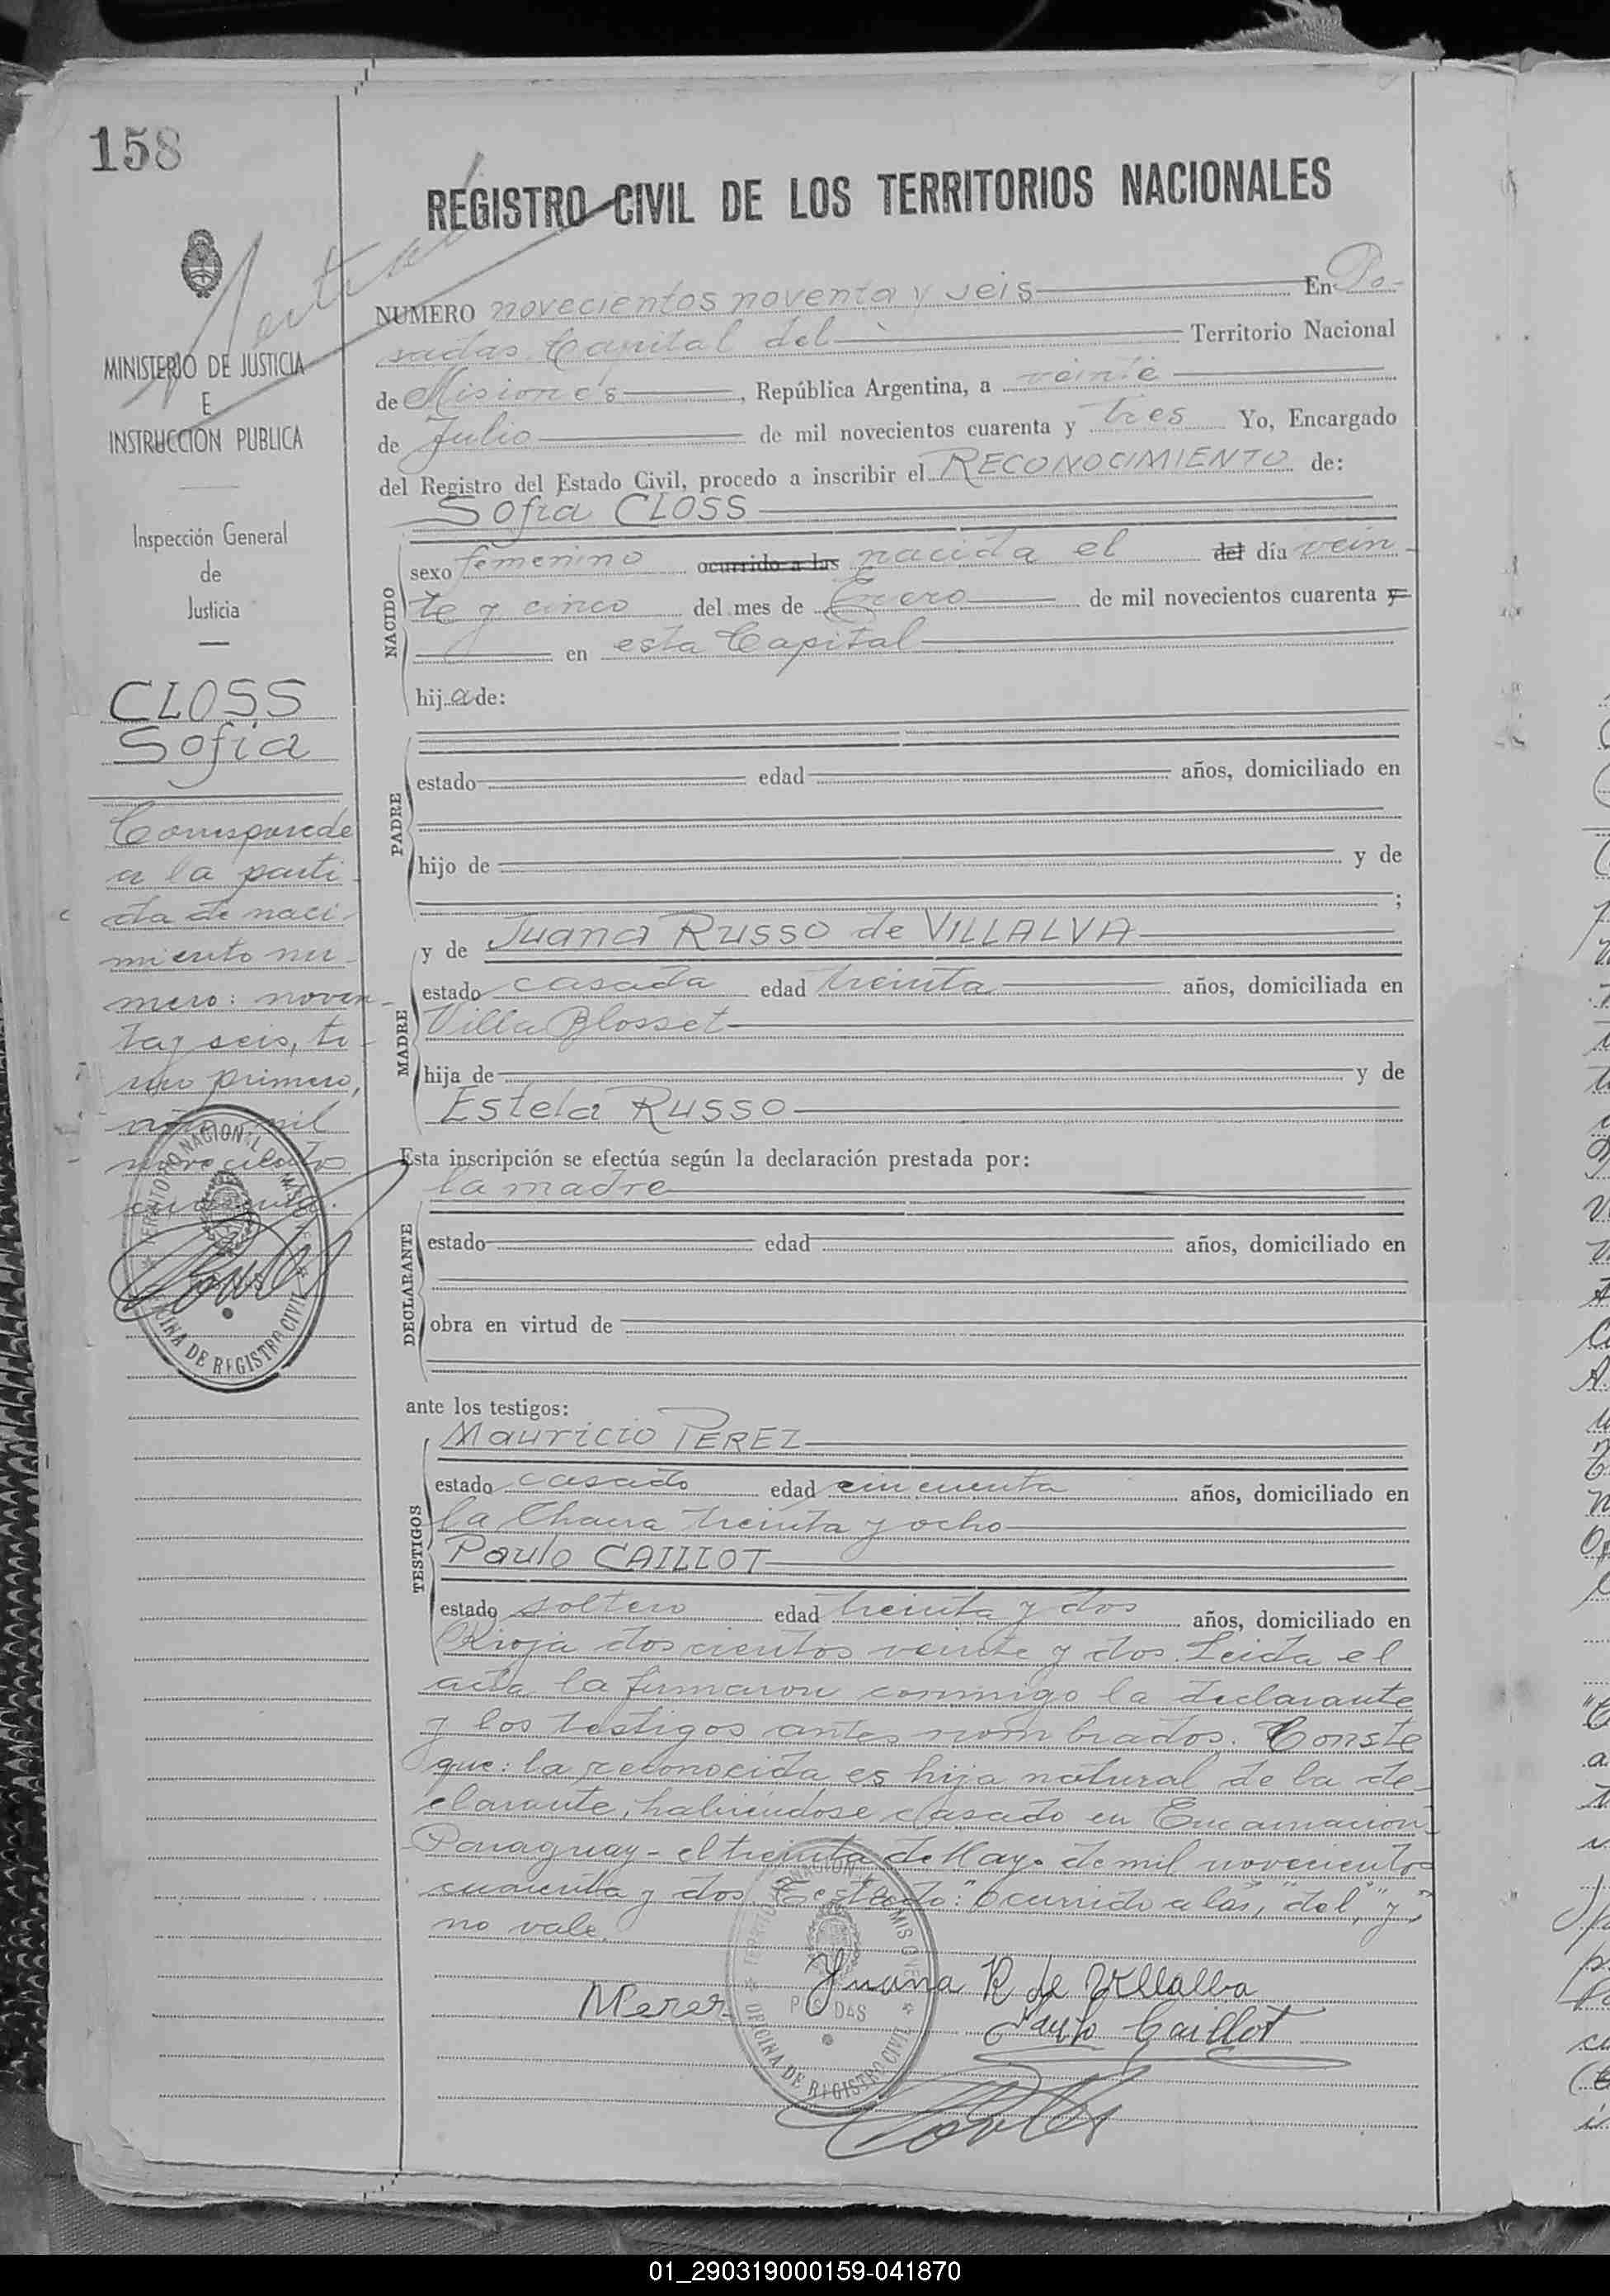 158
REGISTRO CIVIL DE LOS TERRITORIOS NACIONALES
MINISTERIO DE JUSTICIA
E
INSTRUCCION PUBLICA
Inspección General
de
Justicia
CLOSS
Sofia
Corresponde
a la parti
da de naci
miento nu
mero: noven-
ta y seis, to
mo primero,
año mil
novecientos
cuarenta.
NUMERO novecientos noventa y seis En Po-
sadas Capital del Territorio Nacional
de Misiones, República Argentina, a veinte
de Julio de mil novecientos cuarenta y tres Yo, Encargado
del Registro del Estado Civil, procedo a inscribir el RECONOCIMIENTO de:
Sofia CLOSS
NACIDO
sexo femenino ocurrido a las nacida el del día vein-
te y cinco del mes de Enero de mil novecientos cuarenta y
en esta Capital
hija de:
PADRE
estado edad años, domiciliado en
hijo de y de
;
MADRE
y de Juana RUSSO de VILLALVA
estado casada edad treinta años, domiciliada en
Villa Blosset
hija de y de
Estela RUSSO
Esta inscripción se efectúa según la declaración prestada por:
la madre
DECLARANTE
estado edad años, domiciliado en
obra en virtud de
ante los testigos:
TESTIGOS
Mauricio PEREZ
estado casado edad cincuenta años, domiciliado en
la Chacra treinta y ocho
Paulo CAILLOT
estado soltero edad treinta y dos años, domiciliado en
Rioja doscientos veinte y dos. Leida el
acta la firmaron conmigo la declarante
y los testigos antes nombrados. Conste
que: la reconocida es hija natural de la de-
clarante, habiendose casado en Encarnacion-
Paraguay- el treinta de Mayo de mil novecientos
cuarenta y dos. Testado: "ocurrido a las", "del", "y",
no vale.
Juana R de Villalba
MPerez
Paulo Caillot
TERRITORIO NACIONAL MISIONES
POSADAS
OFICINA DE REGISTRO CIVIL
01_290319000159-041870